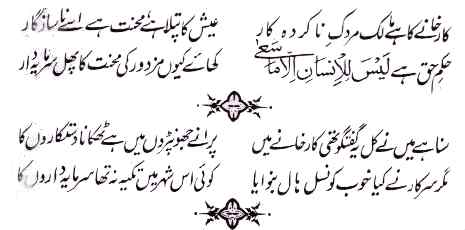 کارخانے کا ہے مالک مردکِ ناکردہ کار عیش کا پتلا ہے محنت ہے اسے ناسازگار
حکمِ حق ہے لَیسَ لِلْاِنسَانِ اِلَّا مَا سَعٰی کھائے کیوں مزدور کی محنت کا پھل سرمایہ دار
سنا ہے میں نے کل یہ گفتگو تھی کارخانے میں پرانے جھونپڑوں میں ہے ٹھکانا دستکاروں کا
مگر سرکار نے کیا خوب کونسل ہال بنوایا کوئی اس شہر میں تکیہ نہ تھا سرمایہ داروں کا